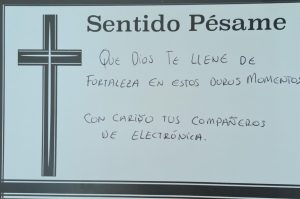 Sentido Pésame
QUE DIOS TE LLENE DE
FORTALEZA EN ESTOS DUROS MOMENTOS
CON CARIÑO TUS COMPAÑEROS
DE ELECTRÓNICA.